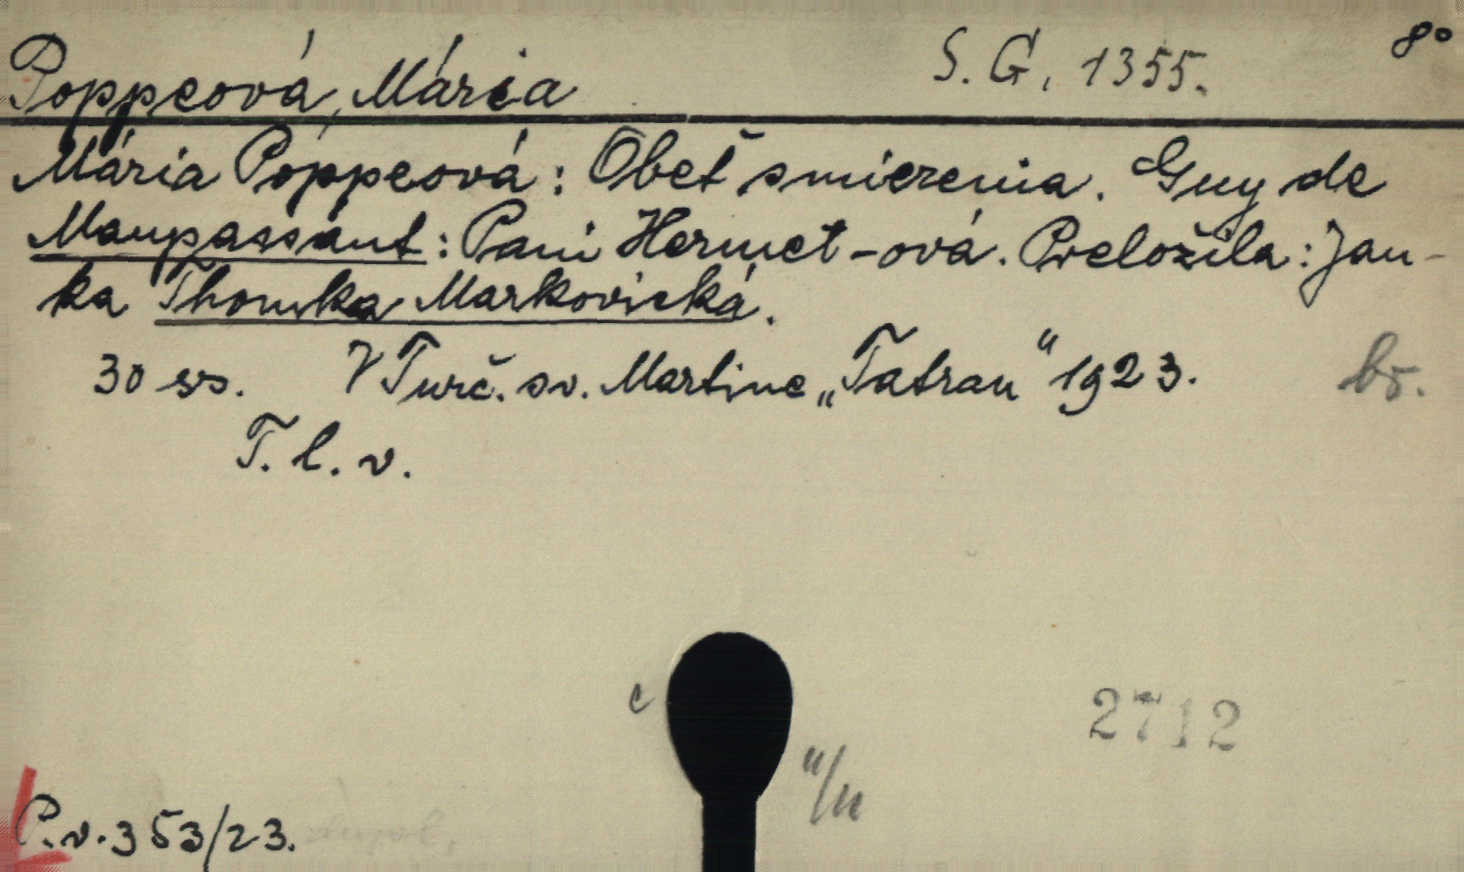 Poppeová, Mária S. G. 1355. 8°
Mária Poppeová: Obeť smierenia. Guy de
Maupassant: Pani Hermet-ová. Preložila: Jan-
ka Thomka Markovická.
30 ss. V Turč. sv. Martine „Tatran“ 1923. br.
T. l. v.
c
2712
P. v. 353/23.